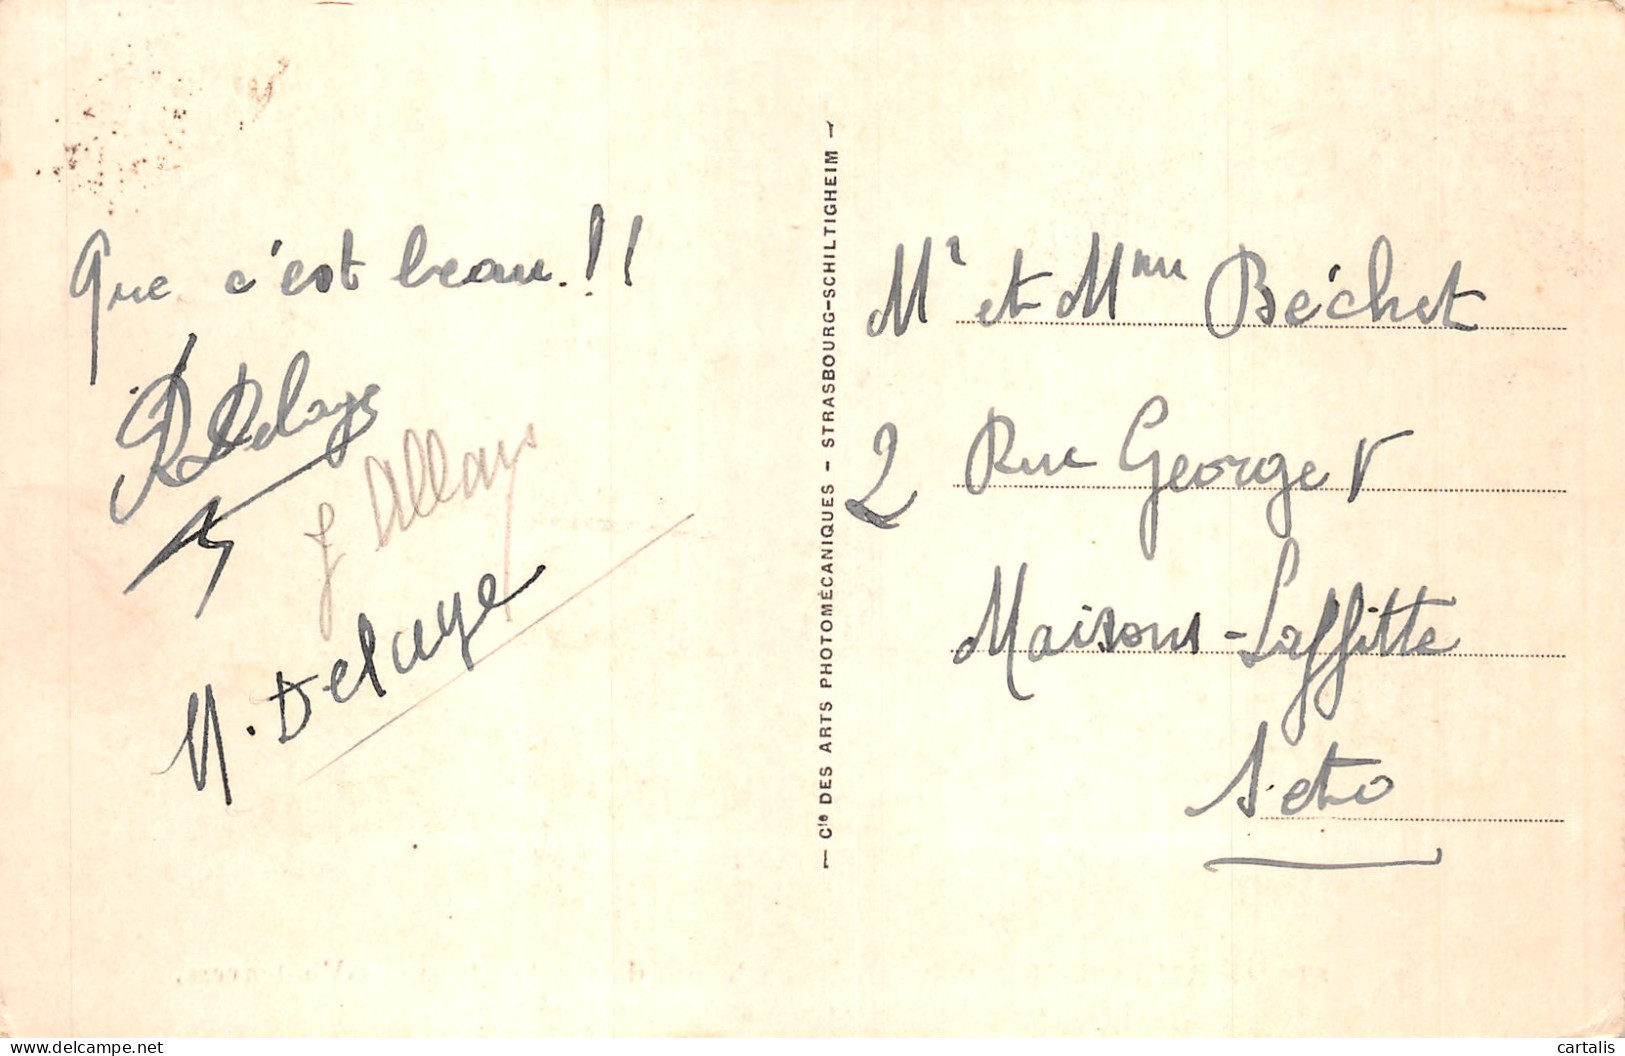 Que c'est beau.!!
RDelaye
J Allays
M. Delaye
— Cie DES ARTS PHOTOMÉCANIQUES - STRASBOURG-SCHILTIGHEIM —
Mr et Mme Béchet
2 Rue George V
Maisons-Laffitte
S. et O
www.delcampe.net
cartalis